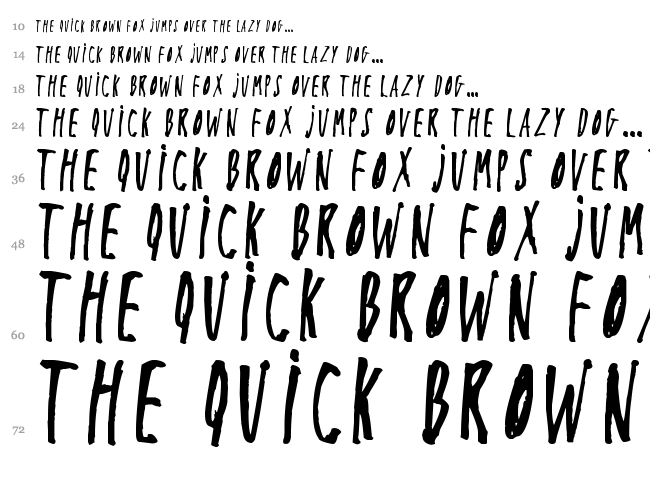 10 THE QUiCK BROWN FOX jUMPS OVER THE LAZY DOG...
14 THE QUiCK BROWN FOX jUMPS OVER THE LAZY DOG...
18 THE QUiCK BROWN FOX jUMPS OVER THE LAZY DOG...
24 THE QUiCK BROWN FOX jUMPS OVER THE LAZY DOG...
36 THE QUiCK BROWN FOX jUMPS OVER
48 THE QUiCK BROWN FOX jUM
60 THE QUiCK BROWN FOX
72 THE QUiCK BROWN